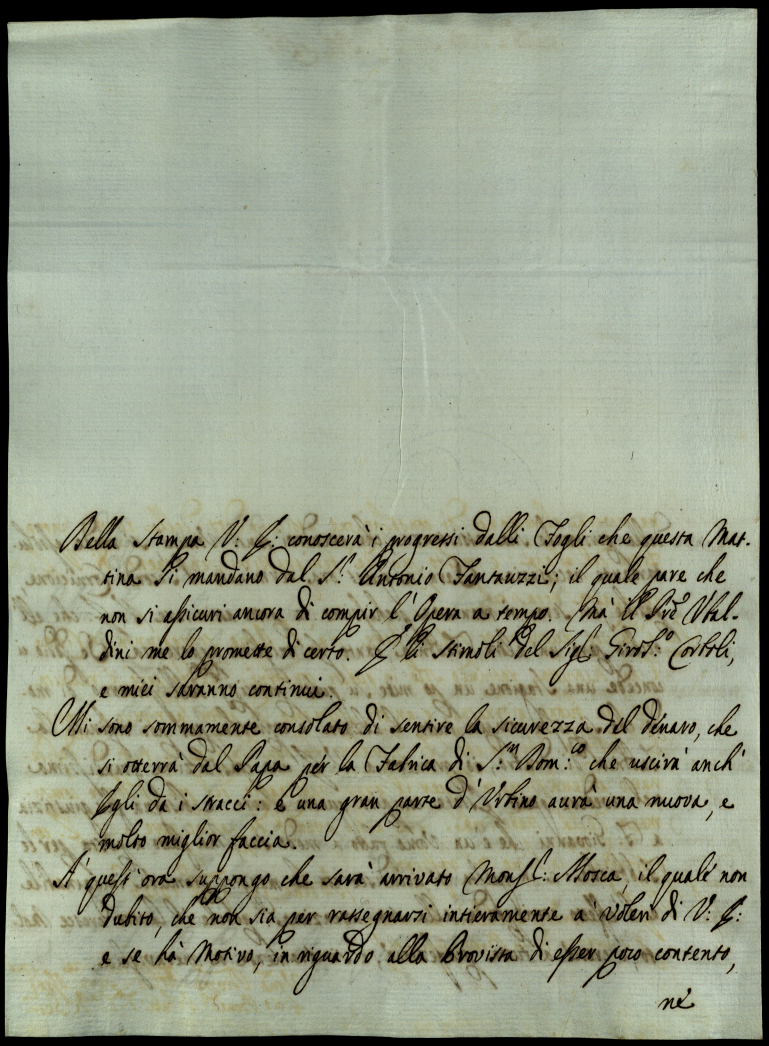 Della Stampa V: E: conoscerà i progressi dalli Fogli che questa Mat-
tina si mandano dal S.r Antonio Fantauzzi; il quale pare che
non si assicuri ancora di compir l'Opera a tempo. Mà il Prē Ubal-
dini me lo promette di certo. E li stimoli del Sig.r Girol.o Corboli,
e miei saranno continui.
Mi sono sommamente consolato di sentire la sicurezza del denaro, che
si otterrà dal Papa per la Fabrica di S.n Dom.co che uscirà anch'
Egli da i stracci: e una gran parte d'Urbino aurà una nuova, e
molto miglior faccia.
A' quest'ora suppongo che sarà arrivato Mons.r Mosca, il quale non
dubito, che non sia per rassegnarsi intieramente a' voleri di V: E:
e se hà Motivo, in riguardo alla Provista di esser poco contento,
nè